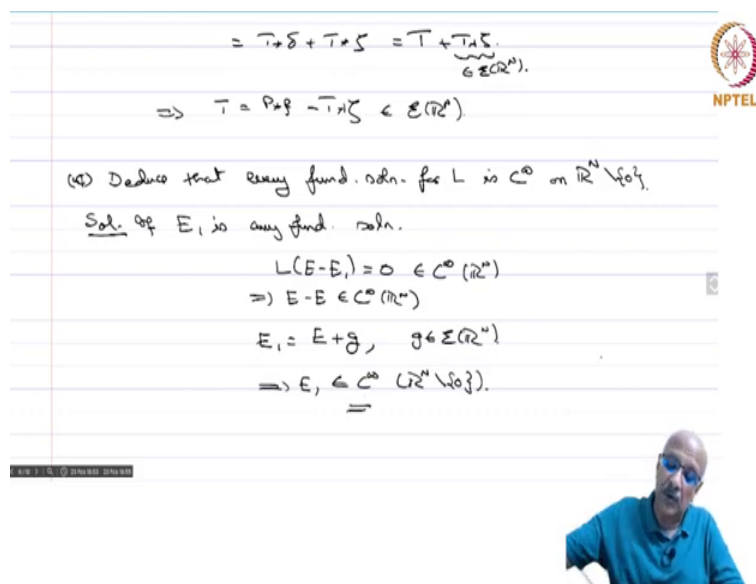 = T*δ + T*ζ = T + T*ζ
∈ Ɛ(ℝᴺ).
NPTEL
⇒ T = P*g - T*ζ ∈ Ɛ(ℝᴺ).
Deduce that every fund. soln. for L is C^∞ on ℝᴺ\{0}.
Sol. If E₁ is any fund. soln.
L(E-E₁) = 0 ∈ C^∞(ℝᴺ)
⇒ E-E ∈ C^∞(ℝᴺ)
E₁ = E + g, g ∈ Ɛ(ℝᴺ)
⇒ E₁ ∈ C^∞ (ℝᴺ\{0}).